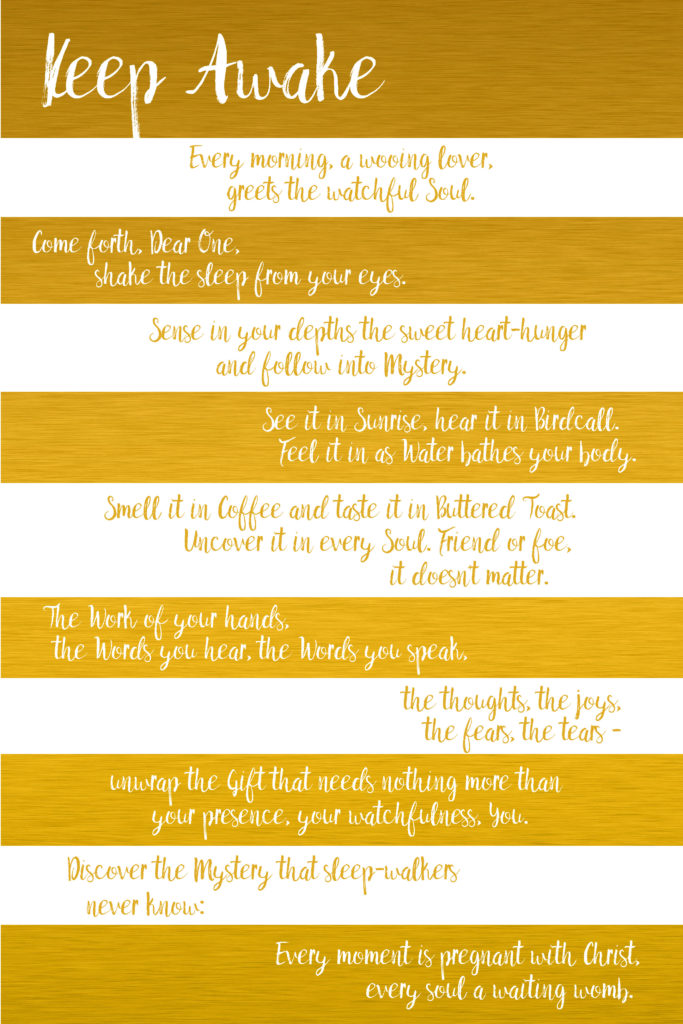 Keep Awake
Every morning, a wooing lover,
greets the watchful Soul.
Come forth, Dear One,
shake the sleep from your eyes.
Sense in your depths the sweet heart-hunger
and follow into Mystery.
See it in Sunrise, hear it in Birdcall.
Feel it in as Water bathes your body.
Smell it in Coffee and taste it in Buttered Toast.
Uncover it in every Soul. Friend or foe,
it doesnt matter.
The Work of your hands,
the Words you hear, the Words you speak,
the thoughts, the joys,
the fears, the tears -
unwrap the Gift that needs nothing more than
your presence, your watchfulness, You.
Discover the Mystery that sleep-walkers
never know:
Every moment is pregnant with Christ,
every soul a waiting womb.